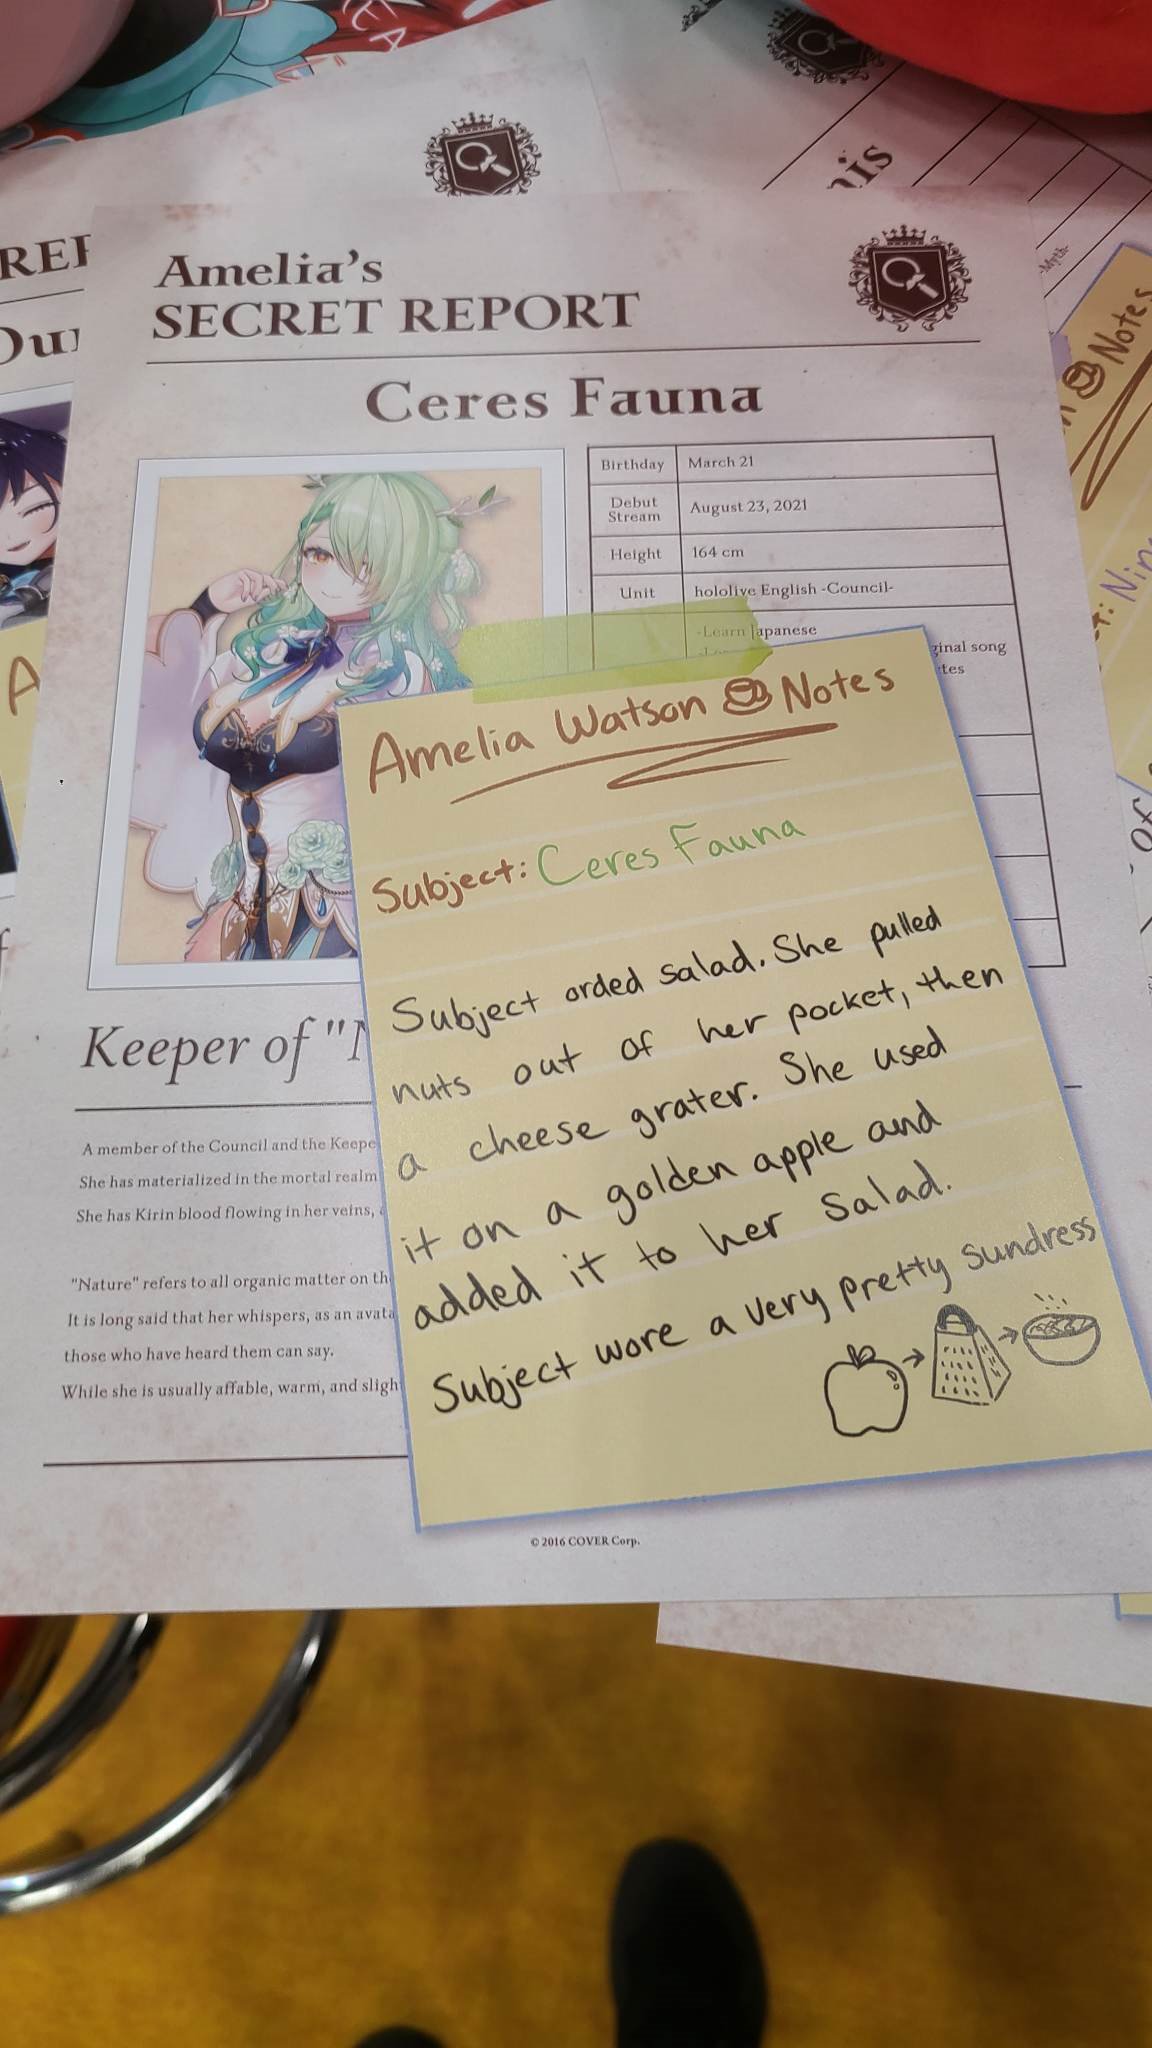 Amelia's
SECRET REPORT
Ceres Fauna
Birthday March 21
Debut Stream August 23, 2021
Height 164 cm
Unit hololive English -Council-
-Learn Japanese
Amelia Watson Notes
Subject: Ceres Fauna
Subject orded salad. She pulled
nuts out of her pocket, then
a cheese grater. She used
it on a golden apple and
added it to her salad.
Subject wore a very pretty sundress
Keeper of "
A member of the Council and the Keepe
She has materialized in the mortal realm
She has Kirin blood flowing in her veins,
"Nature" refers to all organic matter on th
It is long said that her whispers, as an avata
those who have heard them can say.
While she is usually affable, warm, and sligh
© 2016 COVER Corp.
Notes
-Myth-